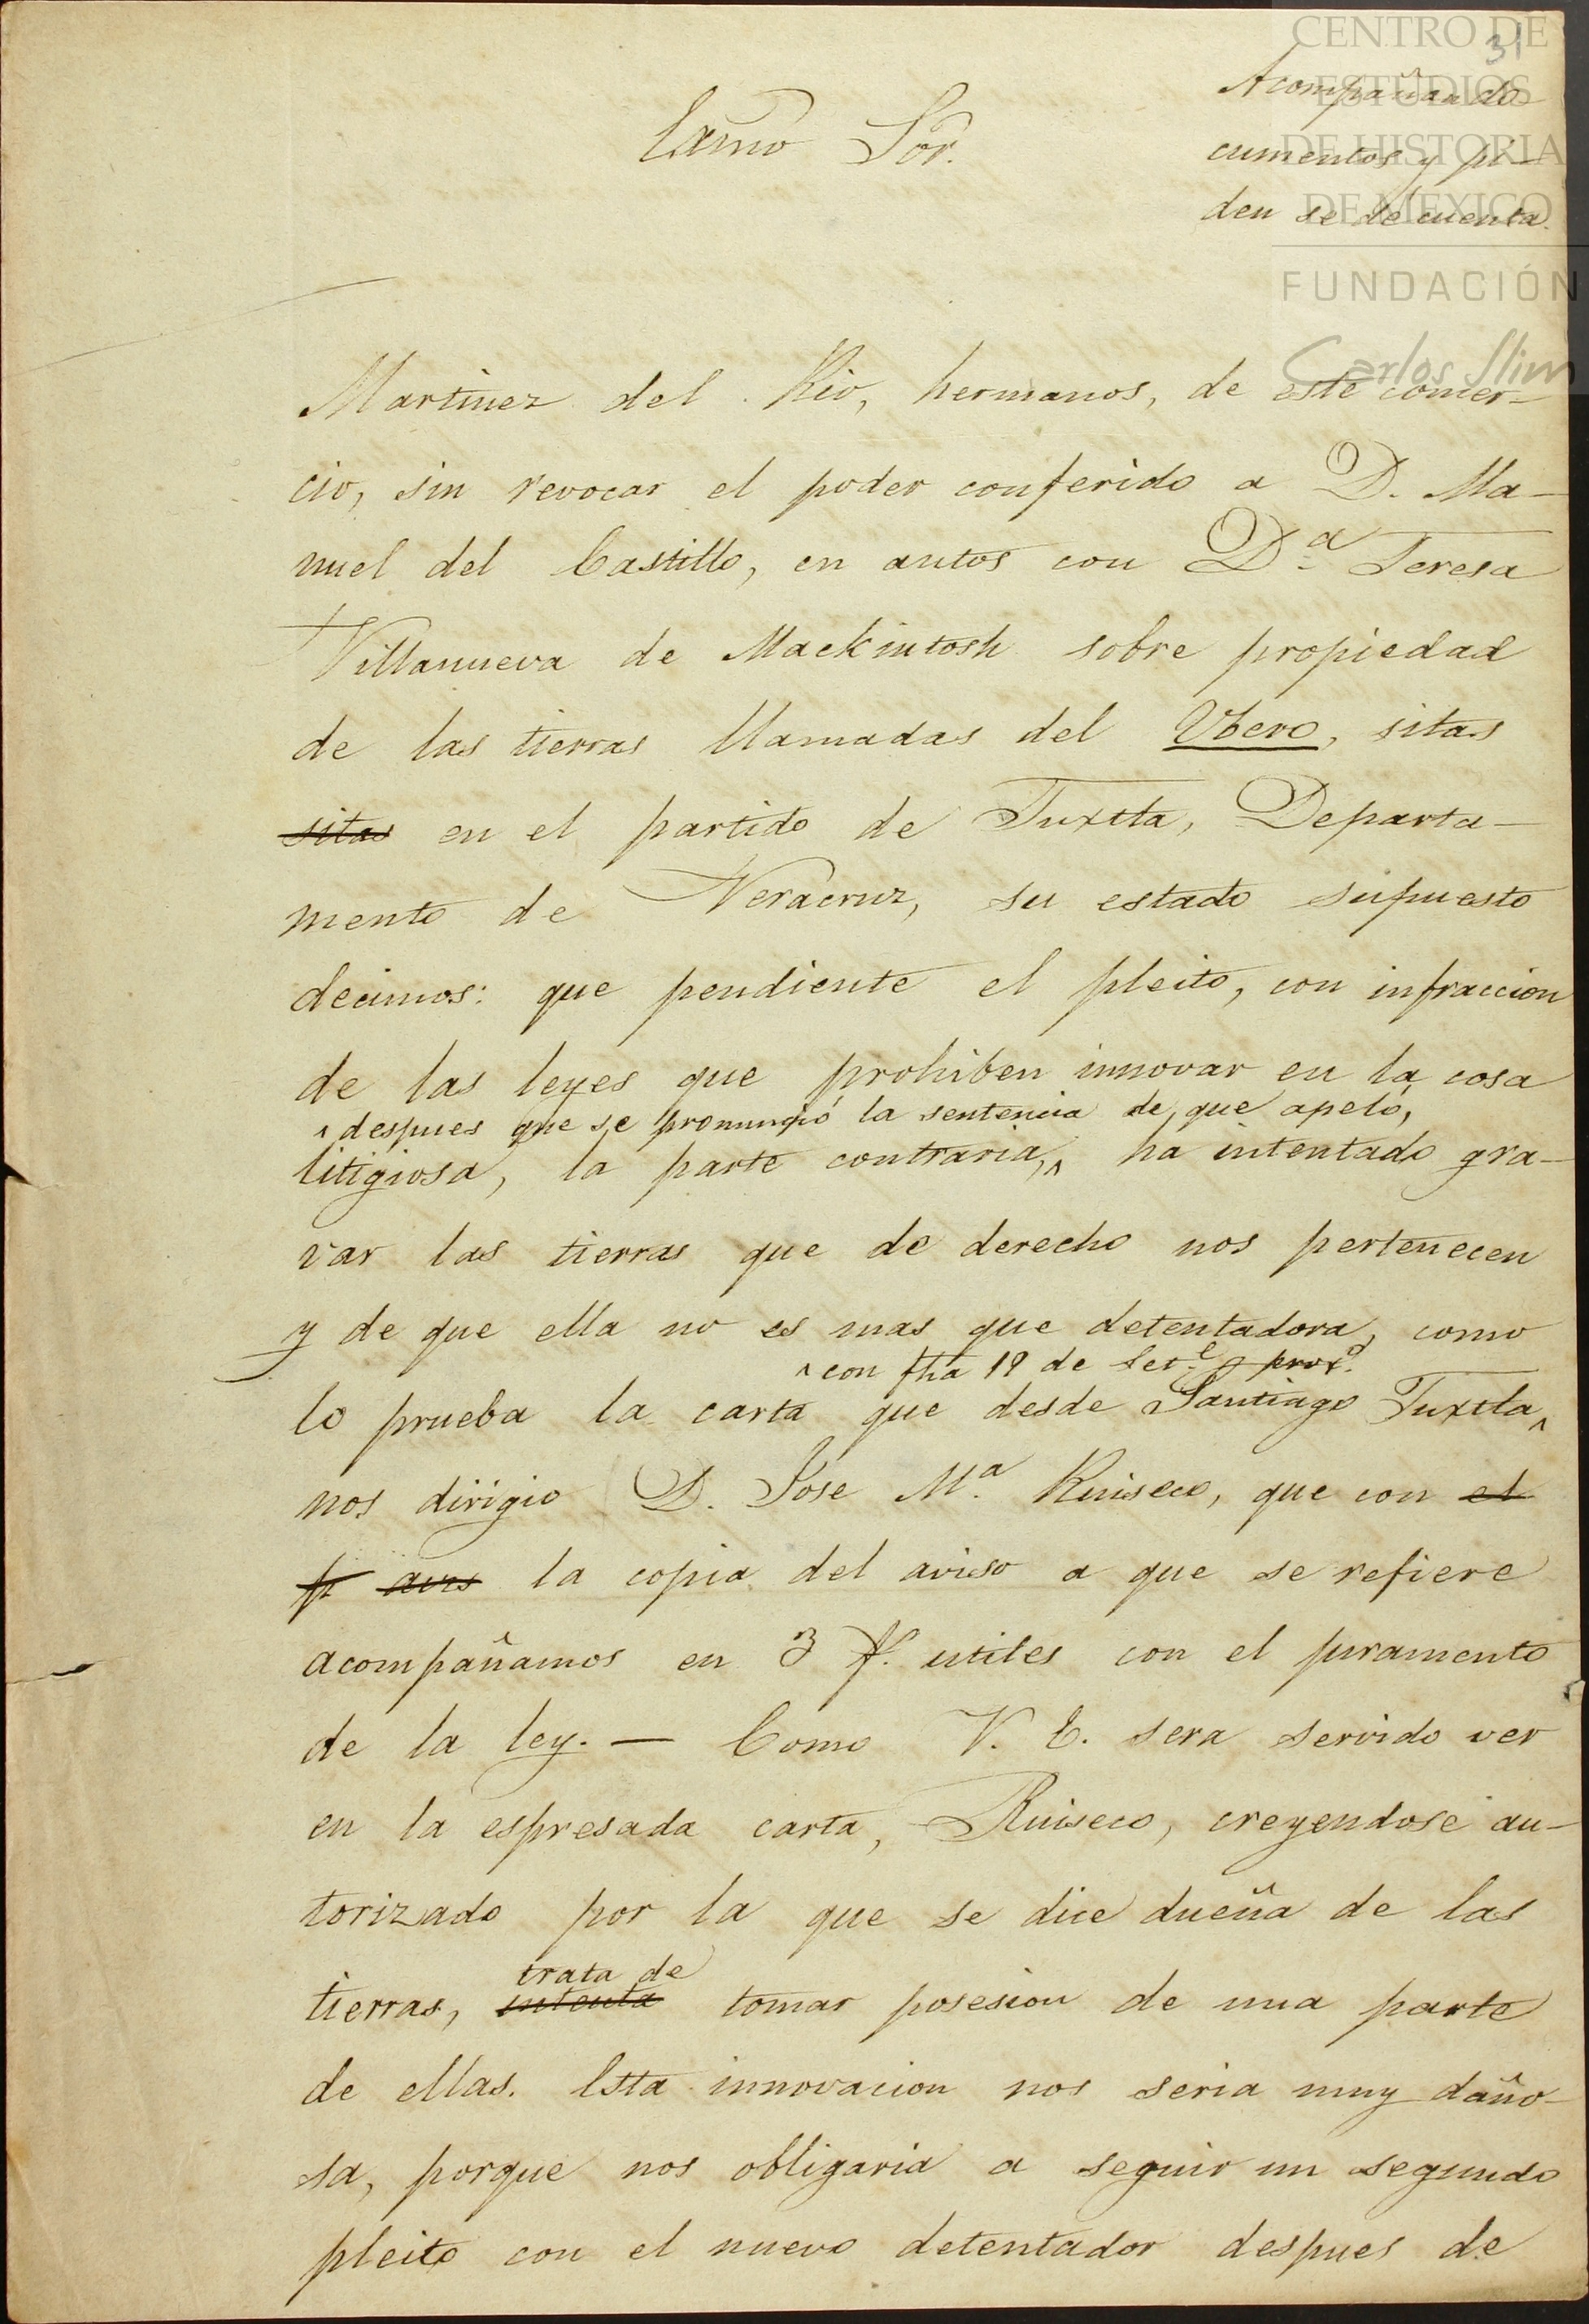 31
Acompañan do-
cumentos y pi-
den se dé cuenta.
Exmo Sor.
CENTRO DE
ESTUDIOS
DE HISTORIA
DE MEXICO
FUNDACIÓN
Carlos Slim
Martinez del Rio, hermanos, de este comer-
cio, sin revocar el poder conferido a D. Ma-
nuel del Castillo, en autos con D.ª Teresa
Villanueva de Mackintosh sobre propiedad
de las tierras llamadas del Ubero, sitas
sitas en el partido de Tuxtla, Departa-
mento de Veracruz, su estado supuesto
decimos: que pendiente el pleito, con infraccion
de las leyes que prohiben innovar en la cosa
^ despues que se pronunció la sentencia de que apeló,
litigiosa, la parte contraria,^ ha intentado gra-
var las tierras que de derecho nos pertenecen
y de que ella no es mas que detentadora, como
^ con fha 19 de Set.e prox.o
lo prueba la carta que desde Santiago Tuxtla^
nos dirigio D. Jose M.ª Ruiseco, que con el
avis la copia del aviso a que se refiere
acompañamos en 3 f. utiles con el juramento
de la ley. — Como V. E. sera servido ver
en la espresada carta, Ruiseco, creyendose au-
torizado por la que se dice dueña de las
trata de
tierras, intenta tomar posesion de una parte
de ellas. Esta innovacion nos seria muy daño-
sa, porque nos obligaria a seguir un segundo
pleito con el nuevo detentador despues de